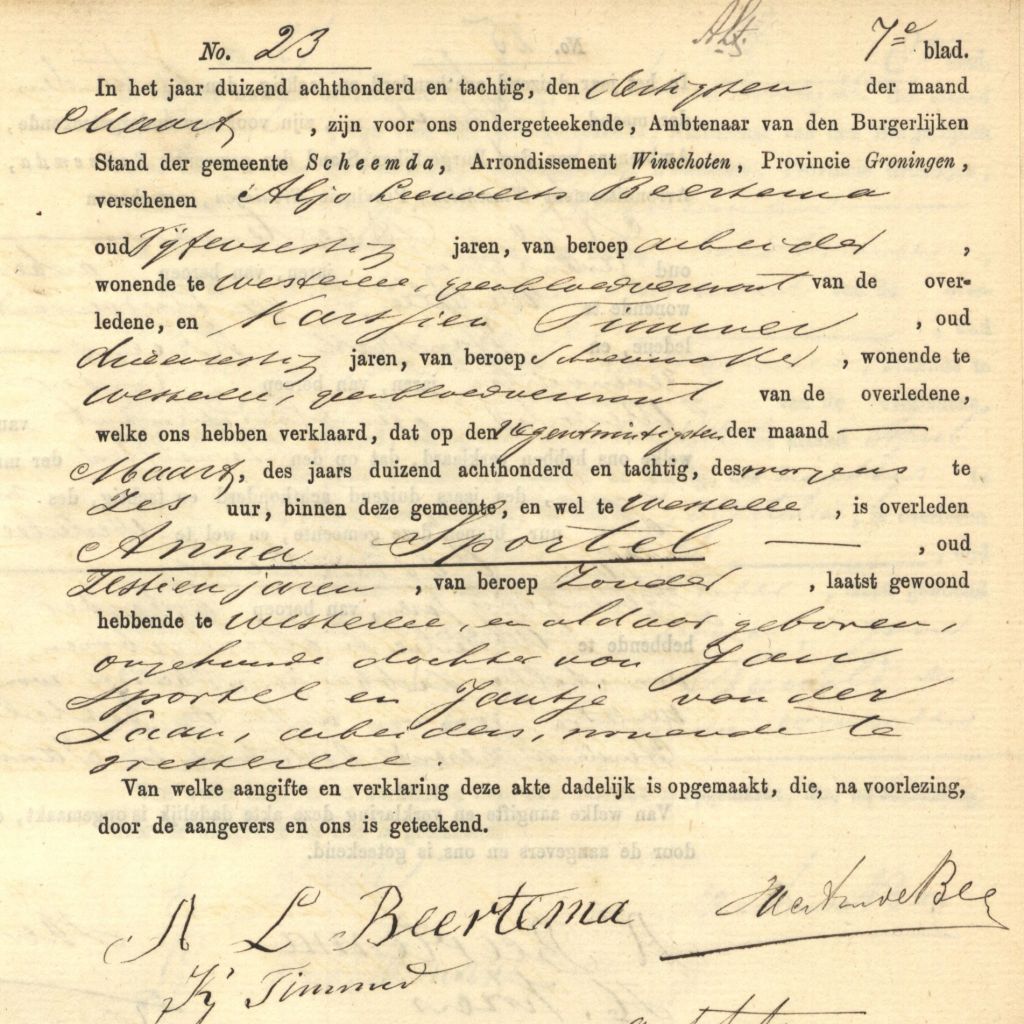 No. 23 7e blad.
In het jaar duizend achthonderd en tachtig, den dertigsten der maand
Maart, zijn voor ons ondergeteekende, Ambtenaar van den Burgerlijken
Stand der gemeente Scheemda, Arrondissement Winschoten, Provincie Groningen,
verschenen Aljo Leenderts Beertema
oud Vijfenzestig jaren, van beroep arbeider,
wonende te Westerlee, geen bloedverwant van de over-
ledene, en Karssien Timmer, oud
drieenzestig jaren, van beroep Schoenmaker, wonende te
Westerlee, geen bloedverwant van de overledene,
welke ons hebben verklaard, dat op den Negentwintigsten der maand
Maart, des jaars duizend achthonderd en tachtig, des morgens te
Zes uur, binnen deze gemeente, en wel te Westerlee, is overleden
Anna Sportel, oud
Zestien jaren, van beroep Zonder, laatst gewoond
hebbende te Westerlee, en aldaar geboren,
ongehuwde dochter van Jan
Sportel en Jantje van der
Laan, arbeiders, wonende te
Westerlee.
Van welke aangifte en verklaring deze akte dadelijk is opgemaakt, die, na voorlezing,
door de aangevers en ons is geteekend.
A L Beertema
Kj Timmer